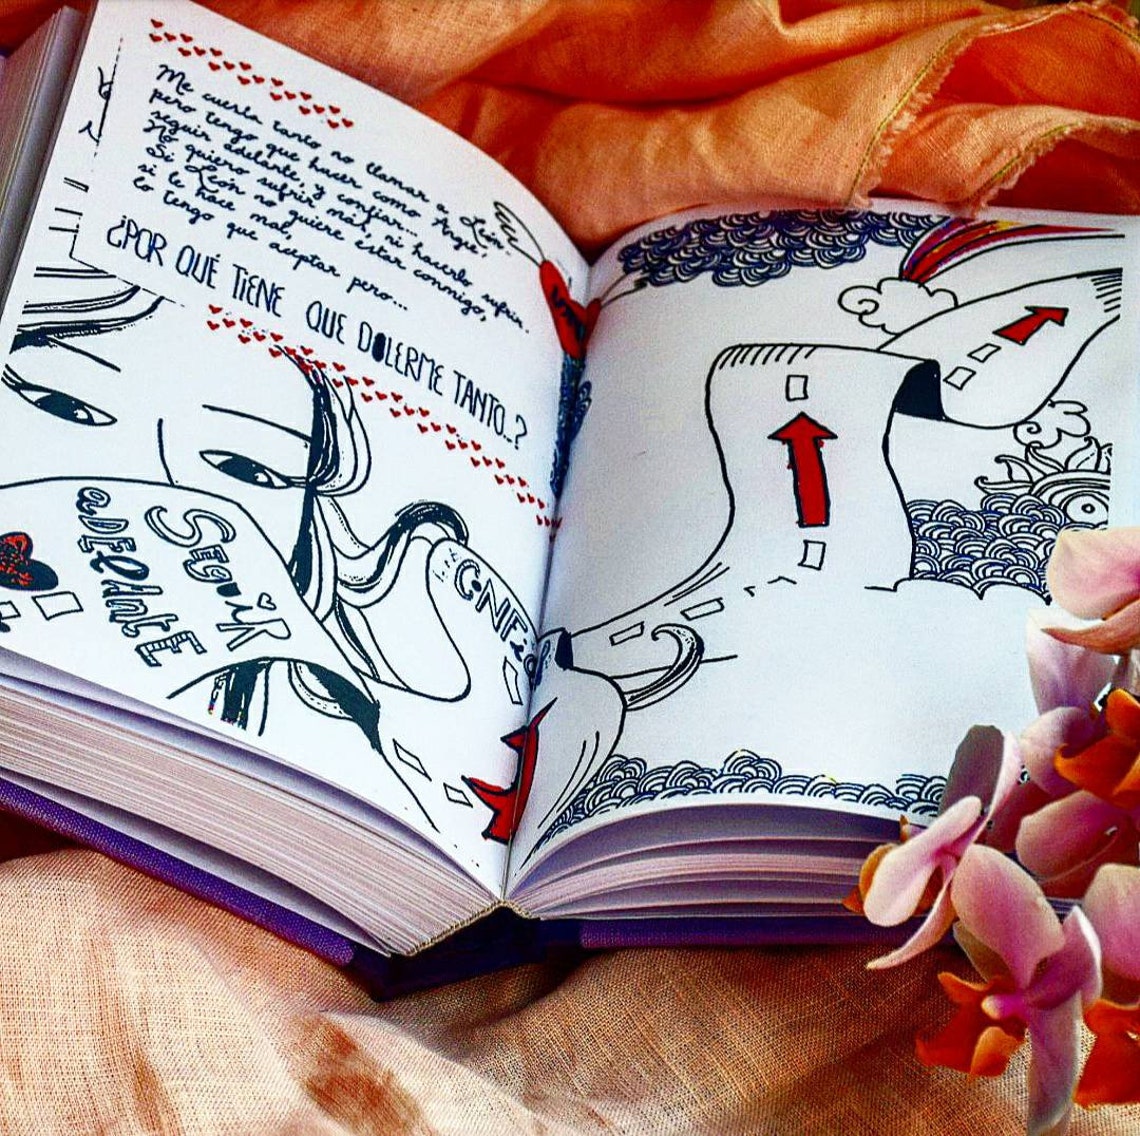 Me cuesta tanto no llamar a León.
pero tengo que hacer como Angie,
seguir adelante, y confiar...
No quiero sufrir más, ni hacerlo sufrir.
Si León no quiere estar conmigo,
si le hace mal,
lo tengo que aceptar pero...
¿POR QUÉ TIENE QUE DOLERME TANTO..?
SEGUIR
aDElAntE